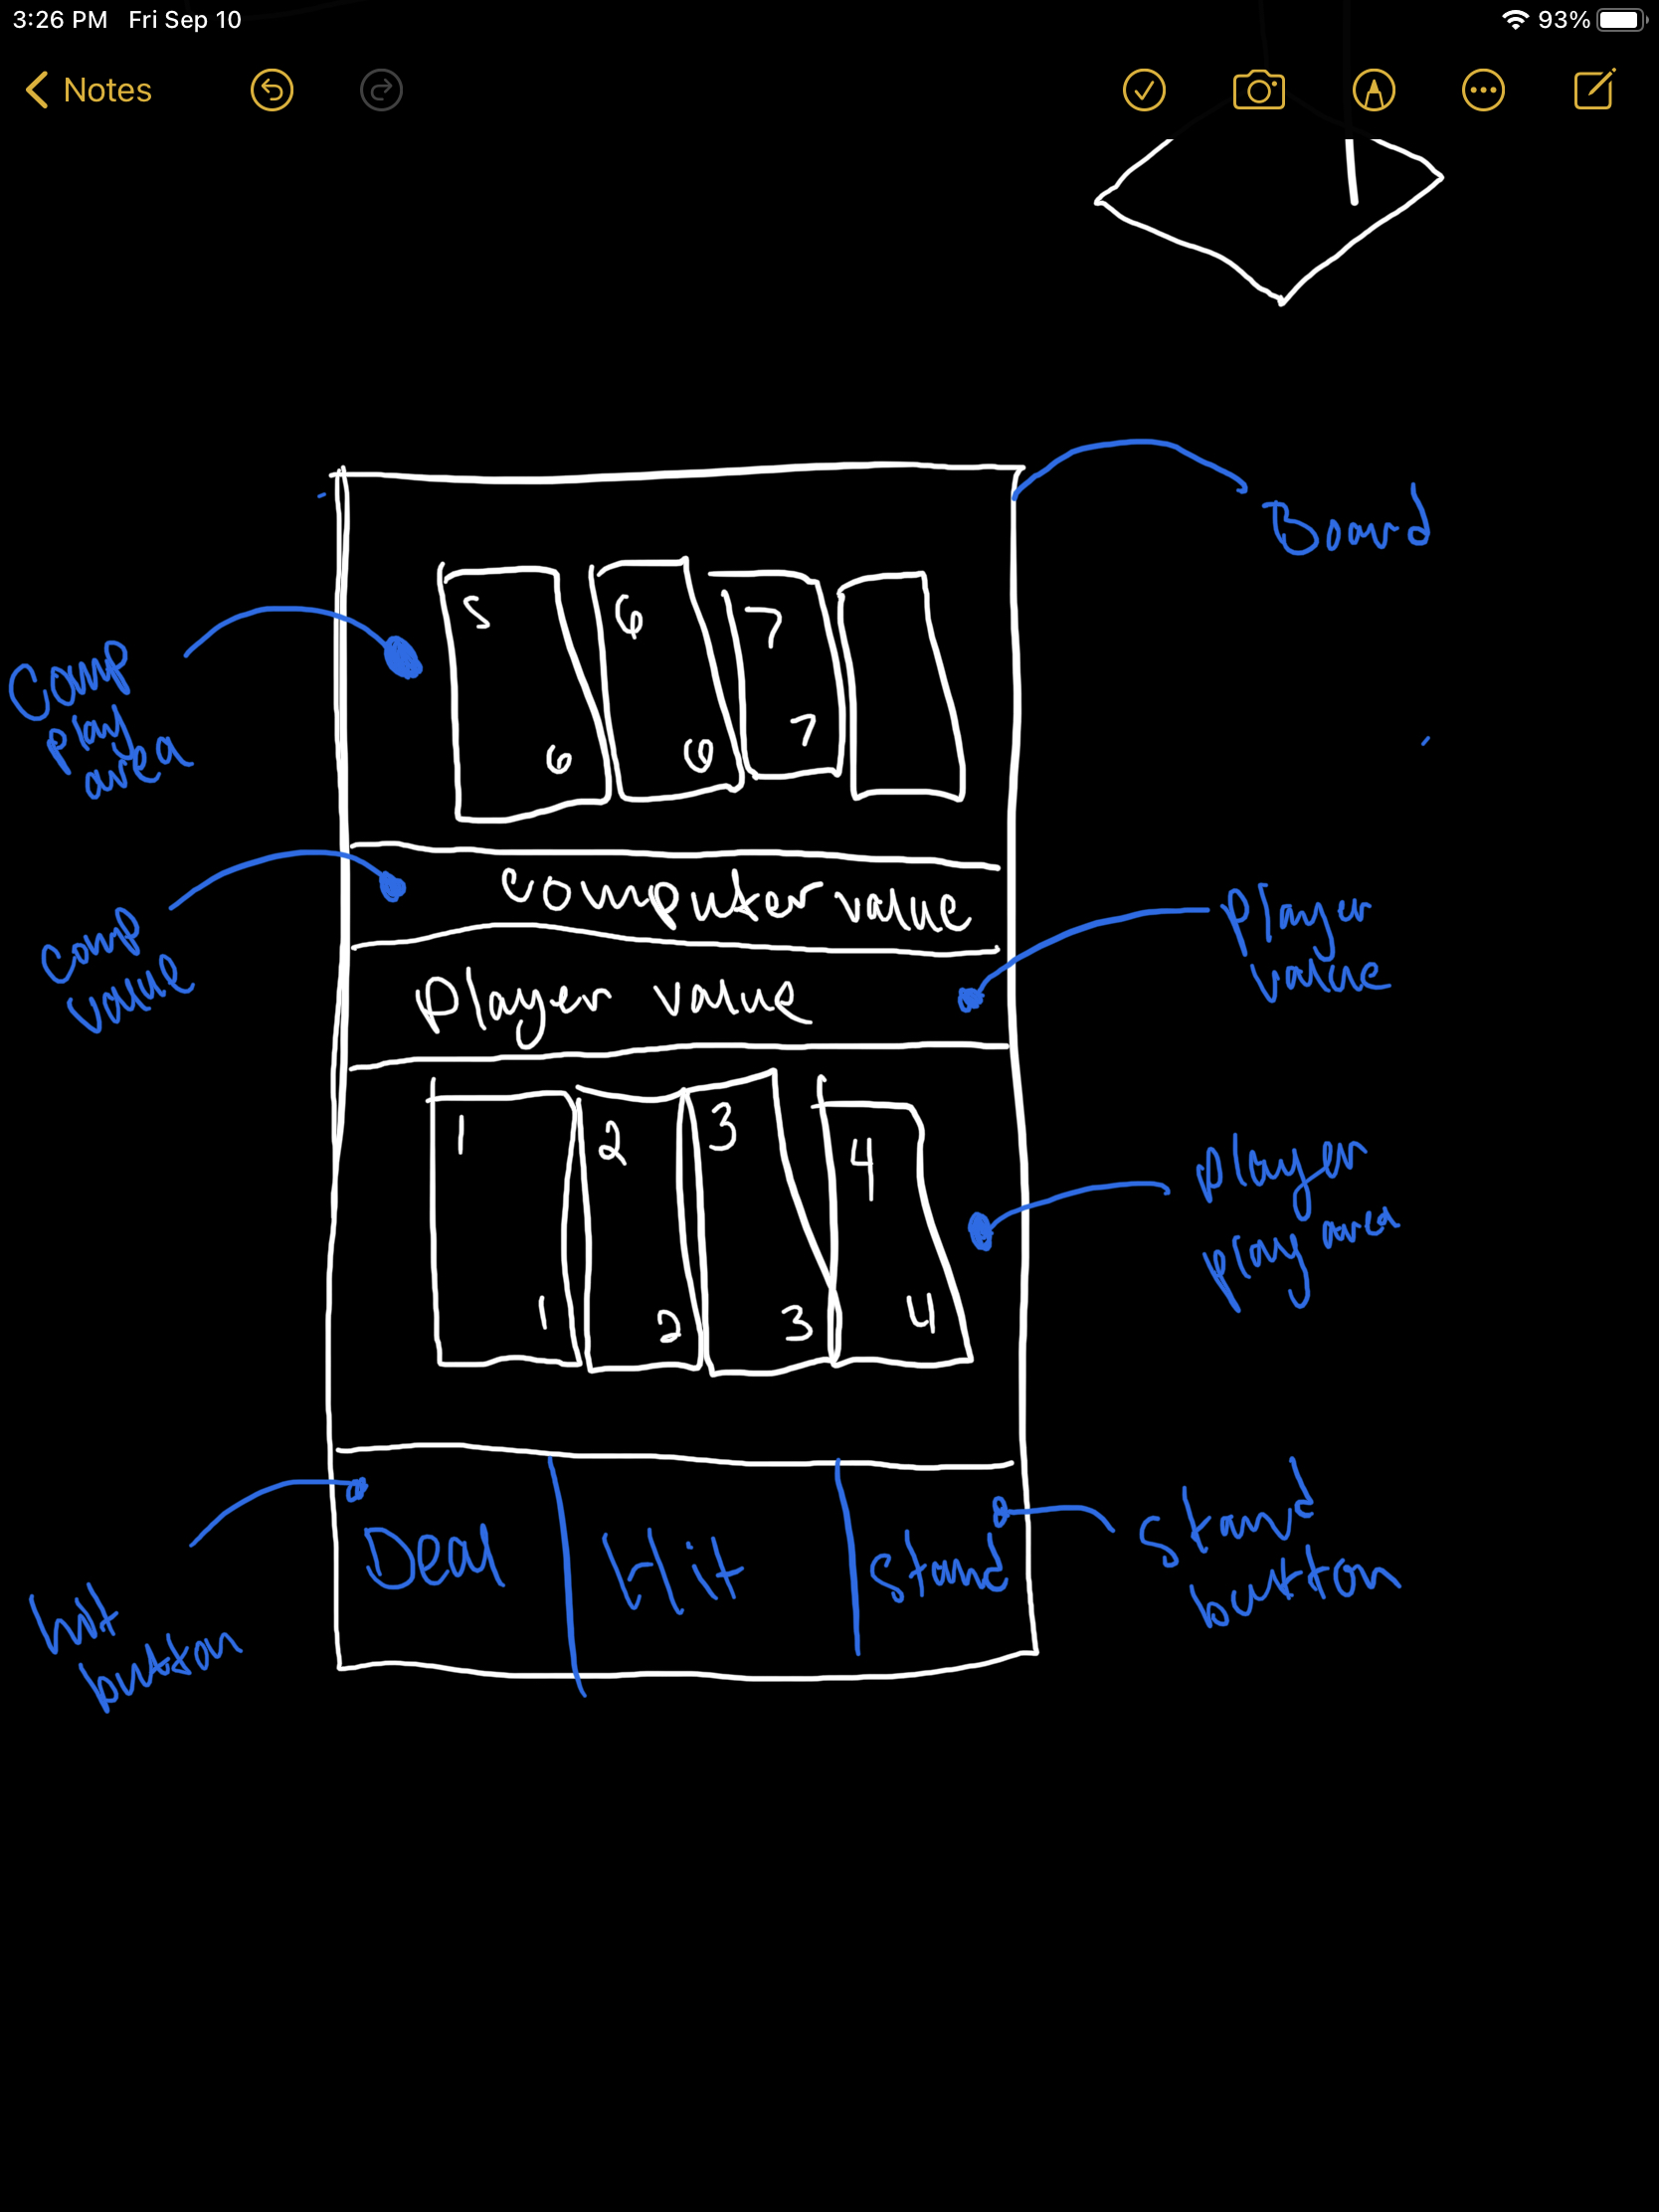 3:26 PM Fri Sep 10 93%
Notes
Board
5 6 7
6 6 7
Comp
play
area
Computer value
Comp
value
Player value
player
value
1 2 3 4
1 2 3 4
player
play area
Deal Hit Stand
hit
button
Stand
button